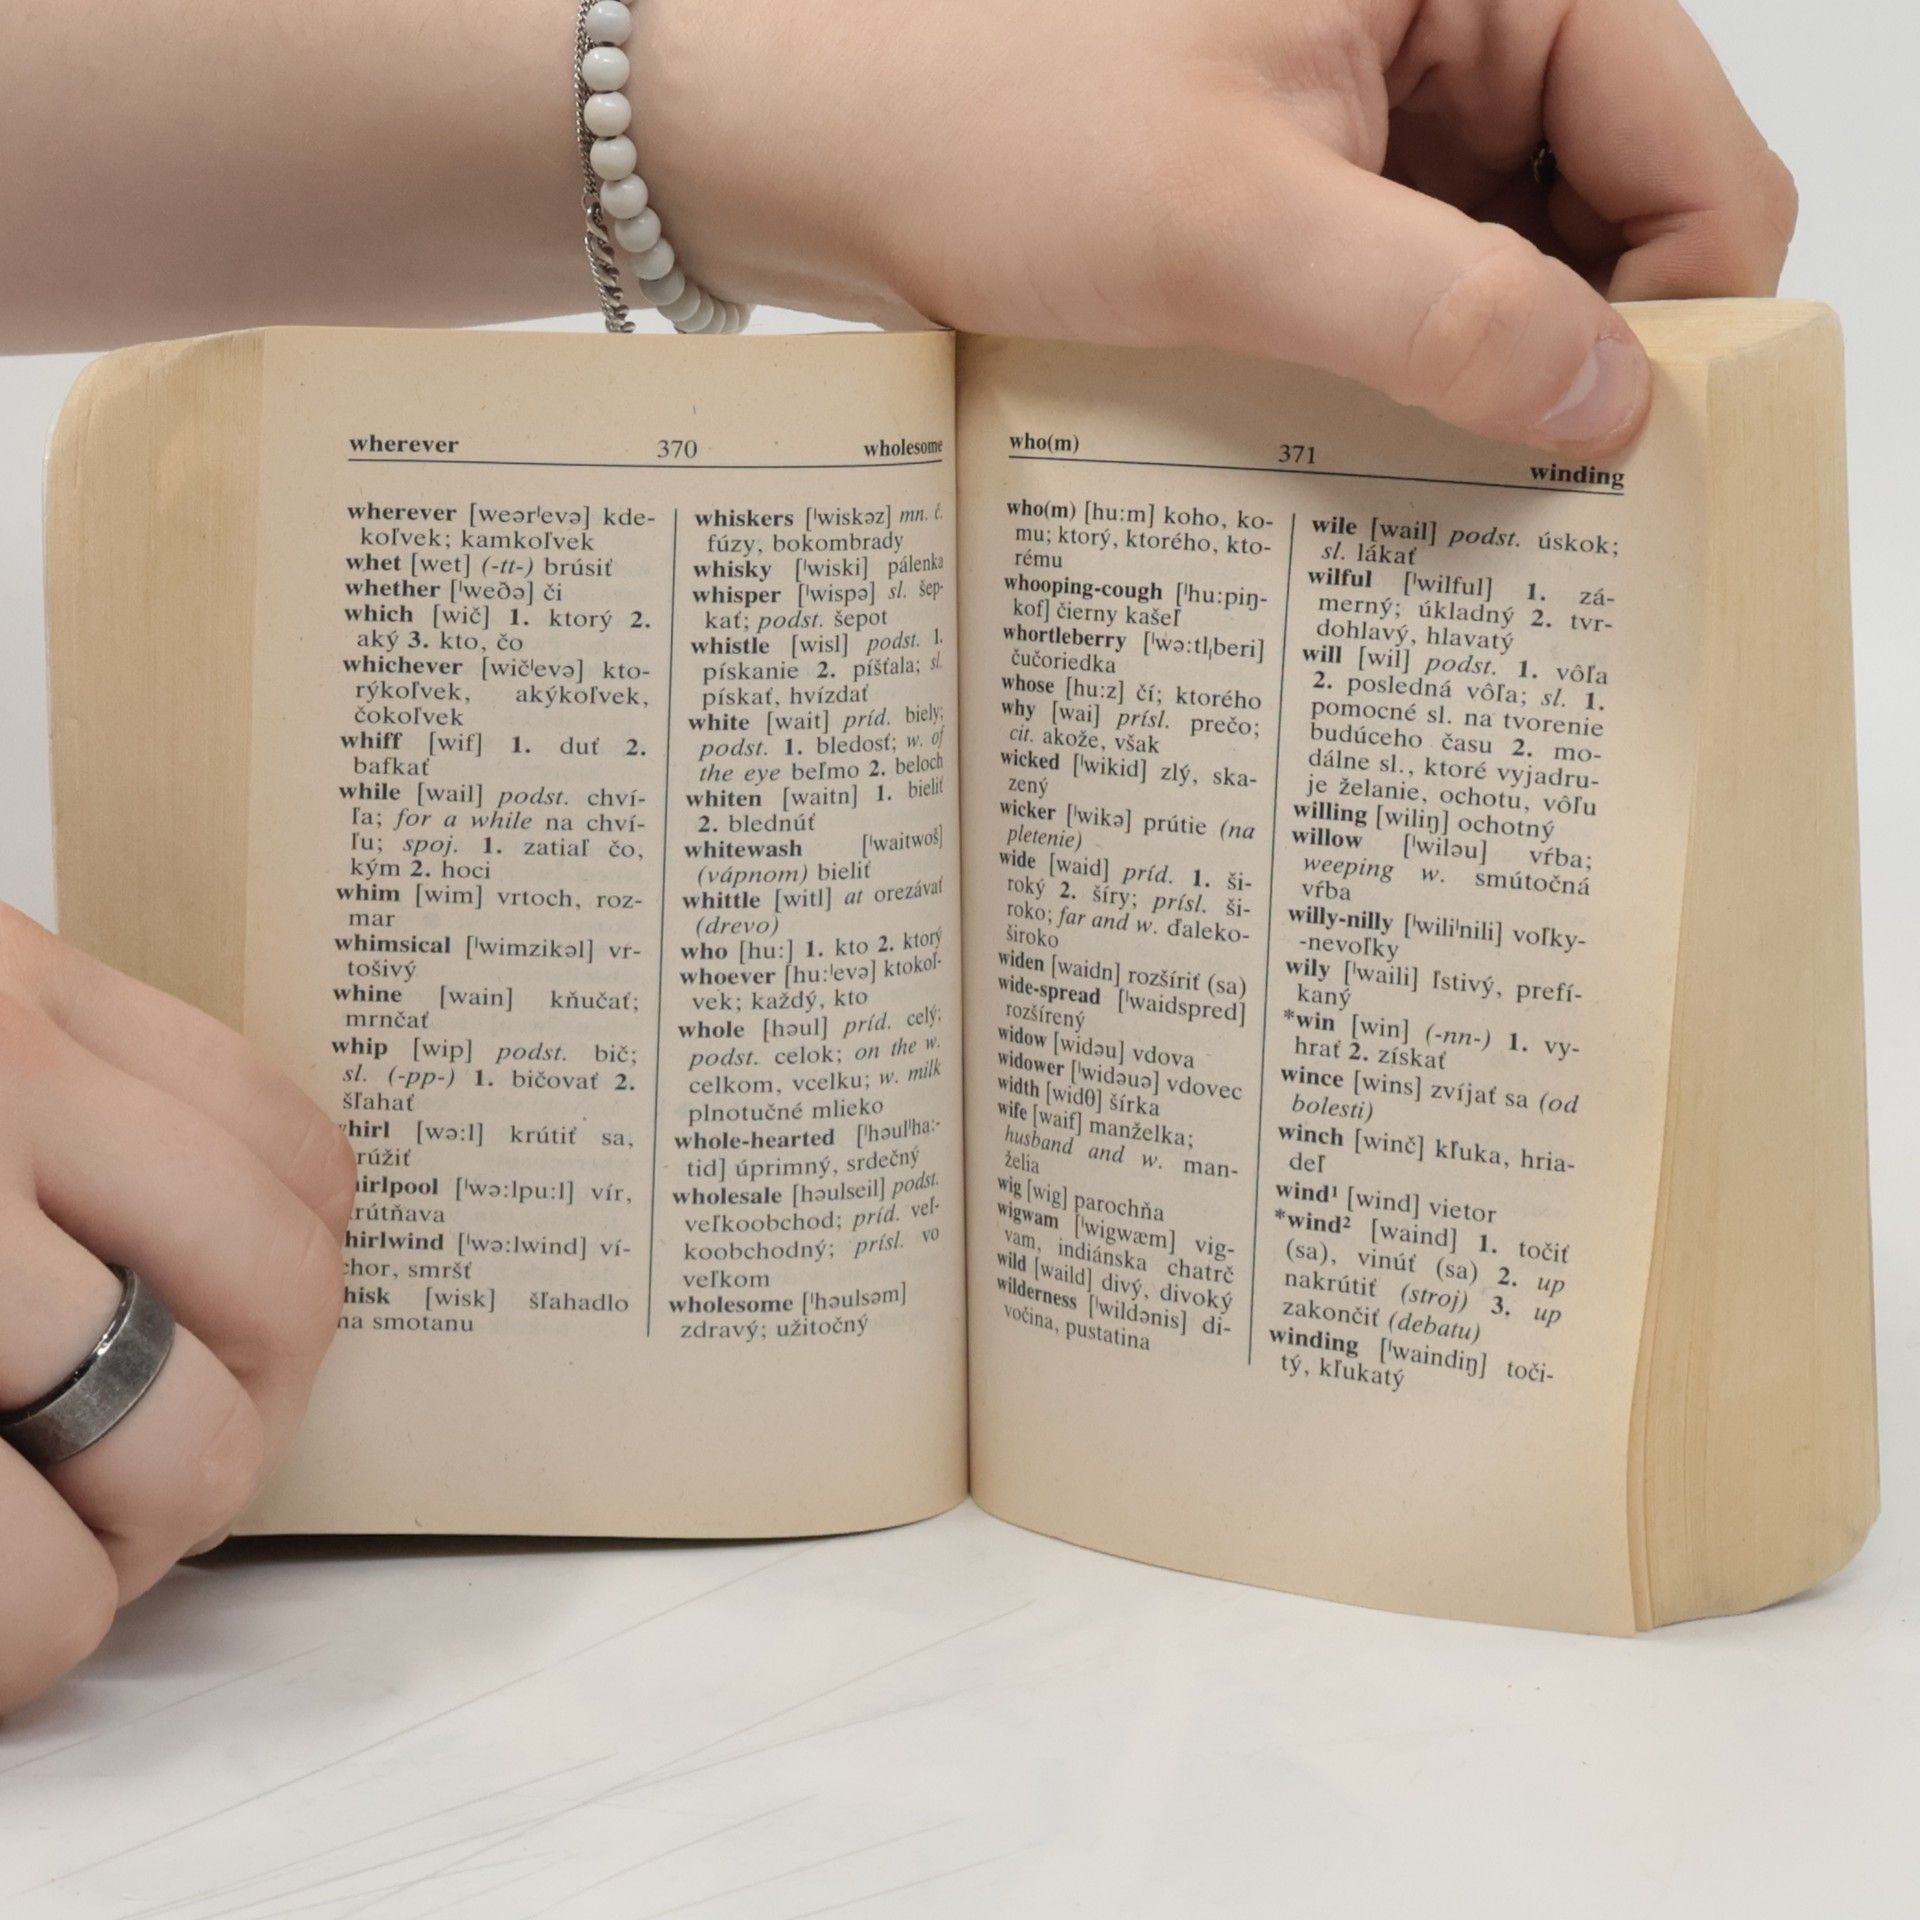 wherever 370 wholesome
wherever [weərˈevə] kde-
koľvek; kamkoľvek
whet [wet] (-tt-) brúsiť
whether [ˈweðə] či
which [wič] 1. ktorý 2.
aký 3. kto, čo
whichever [wičˈevə] kto-
rýkoľvek, akýkoľvek,
čokoľvek
whiff [wif] 1. duť 2.
bafkať
while [wail] podst. chví-
ľa; for a while na chví-
ľu; spoj. 1. zatiaľ čo,
kým 2. hoci
whim [wim] vrtoch, roz-
mar
whimsical [ˈwimzikəl] vr-
tošivý
whine [wain] kňučať;
mrnčať
whip [wip] podst. bič;
sl. (-pp-) 1. bičovať 2.
šľahať
hirl [wə:l] krútiť sa,
rúžiť
irlpool [ˈwə:lpu:l] vír,
rútňava
hirlwind [ˈwə:lwind] ví-
chor, smršť
hisk [wisk] šľahadlo
na smotanu
whiskers [ˈwiskəz] mn. č.
fúzy, bokombrady
whisky [ˈwiski] pálenka
whisper [ˈwispə] sl. šep-
kať; podst. šepot
whistle [wisl] podst. 1.
pískanie 2. píšťala; sl.
pískať, hvízdať
white [wait] príd. biely;
podst. 1. bledosť; w. of
the eye beľmo 2. beloch
whiten [waitn] 1. bieliť
2. blednúť
whitewash [ˈwaitwoš]
(vápnom) bieliť
whittle [witl] at orezávať
(drevo)
who [hu:] 1. kto 2. ktorý
whoever [hu:ˈevə] ktokoľ-
vek; každý, kto
whole [həul] príd. celý;
podst. celok; on the w.
celkom, vcelku; w. milk
plnotučné mlieko
whole-hearted [ˈhəulˈha:-
tid] úprimný, srdečný
wholesale [həulseil] podst.
veľkoobchod; príd. veľ-
koobchodný; prísl. vo
veľkom
wholesome [ˈhəulsəm]
zdravý; užitočný
who(m) 371 winding
who(m) [hu:m] koho, ko-
mu; ktorý, ktorého, kto-
rému
whooping-cough [ˈhu:piŋ-
kof] čierny kašeľ
whortleberry [ˈwə:tlˌberi]
čučoriedka
whose [hu:z] čí; ktorého
why [wai] prísl. prečo;
cit. akože, však
wicked [ˈwikid] zlý, ska-
zený
wicker [ˈwikə] prútie (na
pletenie)
wide [waid] príd. 1. ši-
roký 2. šíry; prísl. ši-
roko; far and w. ďaleko-
široko
widen [waidn] rozšíriť (sa)
wide-spread [ˈwaidspred]
rozšírený
widow [widəu] vdova
widower [ˈwidəuə] vdovec
width [widθ] šírka
wife [waif] manželka;
husband and w. man-
želia
wig [wig] parochňa
wigwam [ˈwigwæm] vig-
vam, indiánska chatrč
wild [waild] divý, divoký
wilderness [ˈwildənis] di-
vočina, pustatina
wile [wail] podst. úskok;
sl. lákať
wilful [ˈwilful] 1. zá-
merný; úkladný 2. tvr-
dohlavý, hlavatý
will [wil] podst. 1. vôľa
2. posledná vôľa; sl. 1.
pomocné sl. na tvorenie
budúceho času 2. mo-
dálne sl., ktoré vyjadru-
je želanie, ochotu, vôľu
willing [wiliŋ] ochotný
willow [ˈwiləu] vŕba;
weeping w. smútočná
vŕba
willy-nilly [ˈwiliˈnili] voľky-
-nevoľky
wily [ˈwaili] ľstivý, prefí-
kaný
*win [win] (-nn-) 1. vy-
hrať 2. získať
wince [wins] zvíjať sa (od
bolesti)
winch [winč] kľuka, hria-
deľ
wind¹ [wind] vietor
*wind² [waind] 1. točiť
(sa), vinúť (sa) 2. up
nakrútiť (stroj) 3. up
zakončiť (debatu)
winding [ˈwaindiŋ] toči-
tý, kľukatý